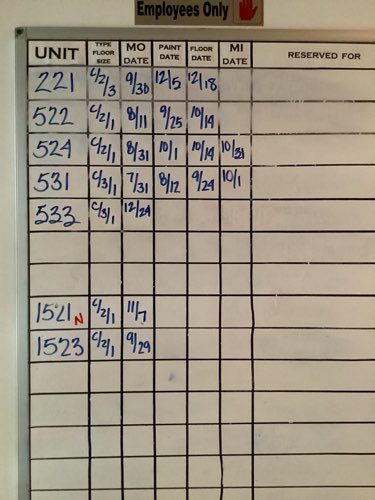 Employees Only
UNIT TYPE FLOOR SIZE MO DATE PAINT DATE FLOOR DATE MI DATE RESERVED FOR
221 C/2/3 9/30 12/5 12/18
522 C/2/1 8/11 9/25 10/14
524 C/2/1 8/31 10/1 10/19 10/31
531 C/3/1 7/31 8/12 9/24 10/1
533 C/3/1 12/24
1521 N C/2/1 11/7
1523 C/2/1 9/29